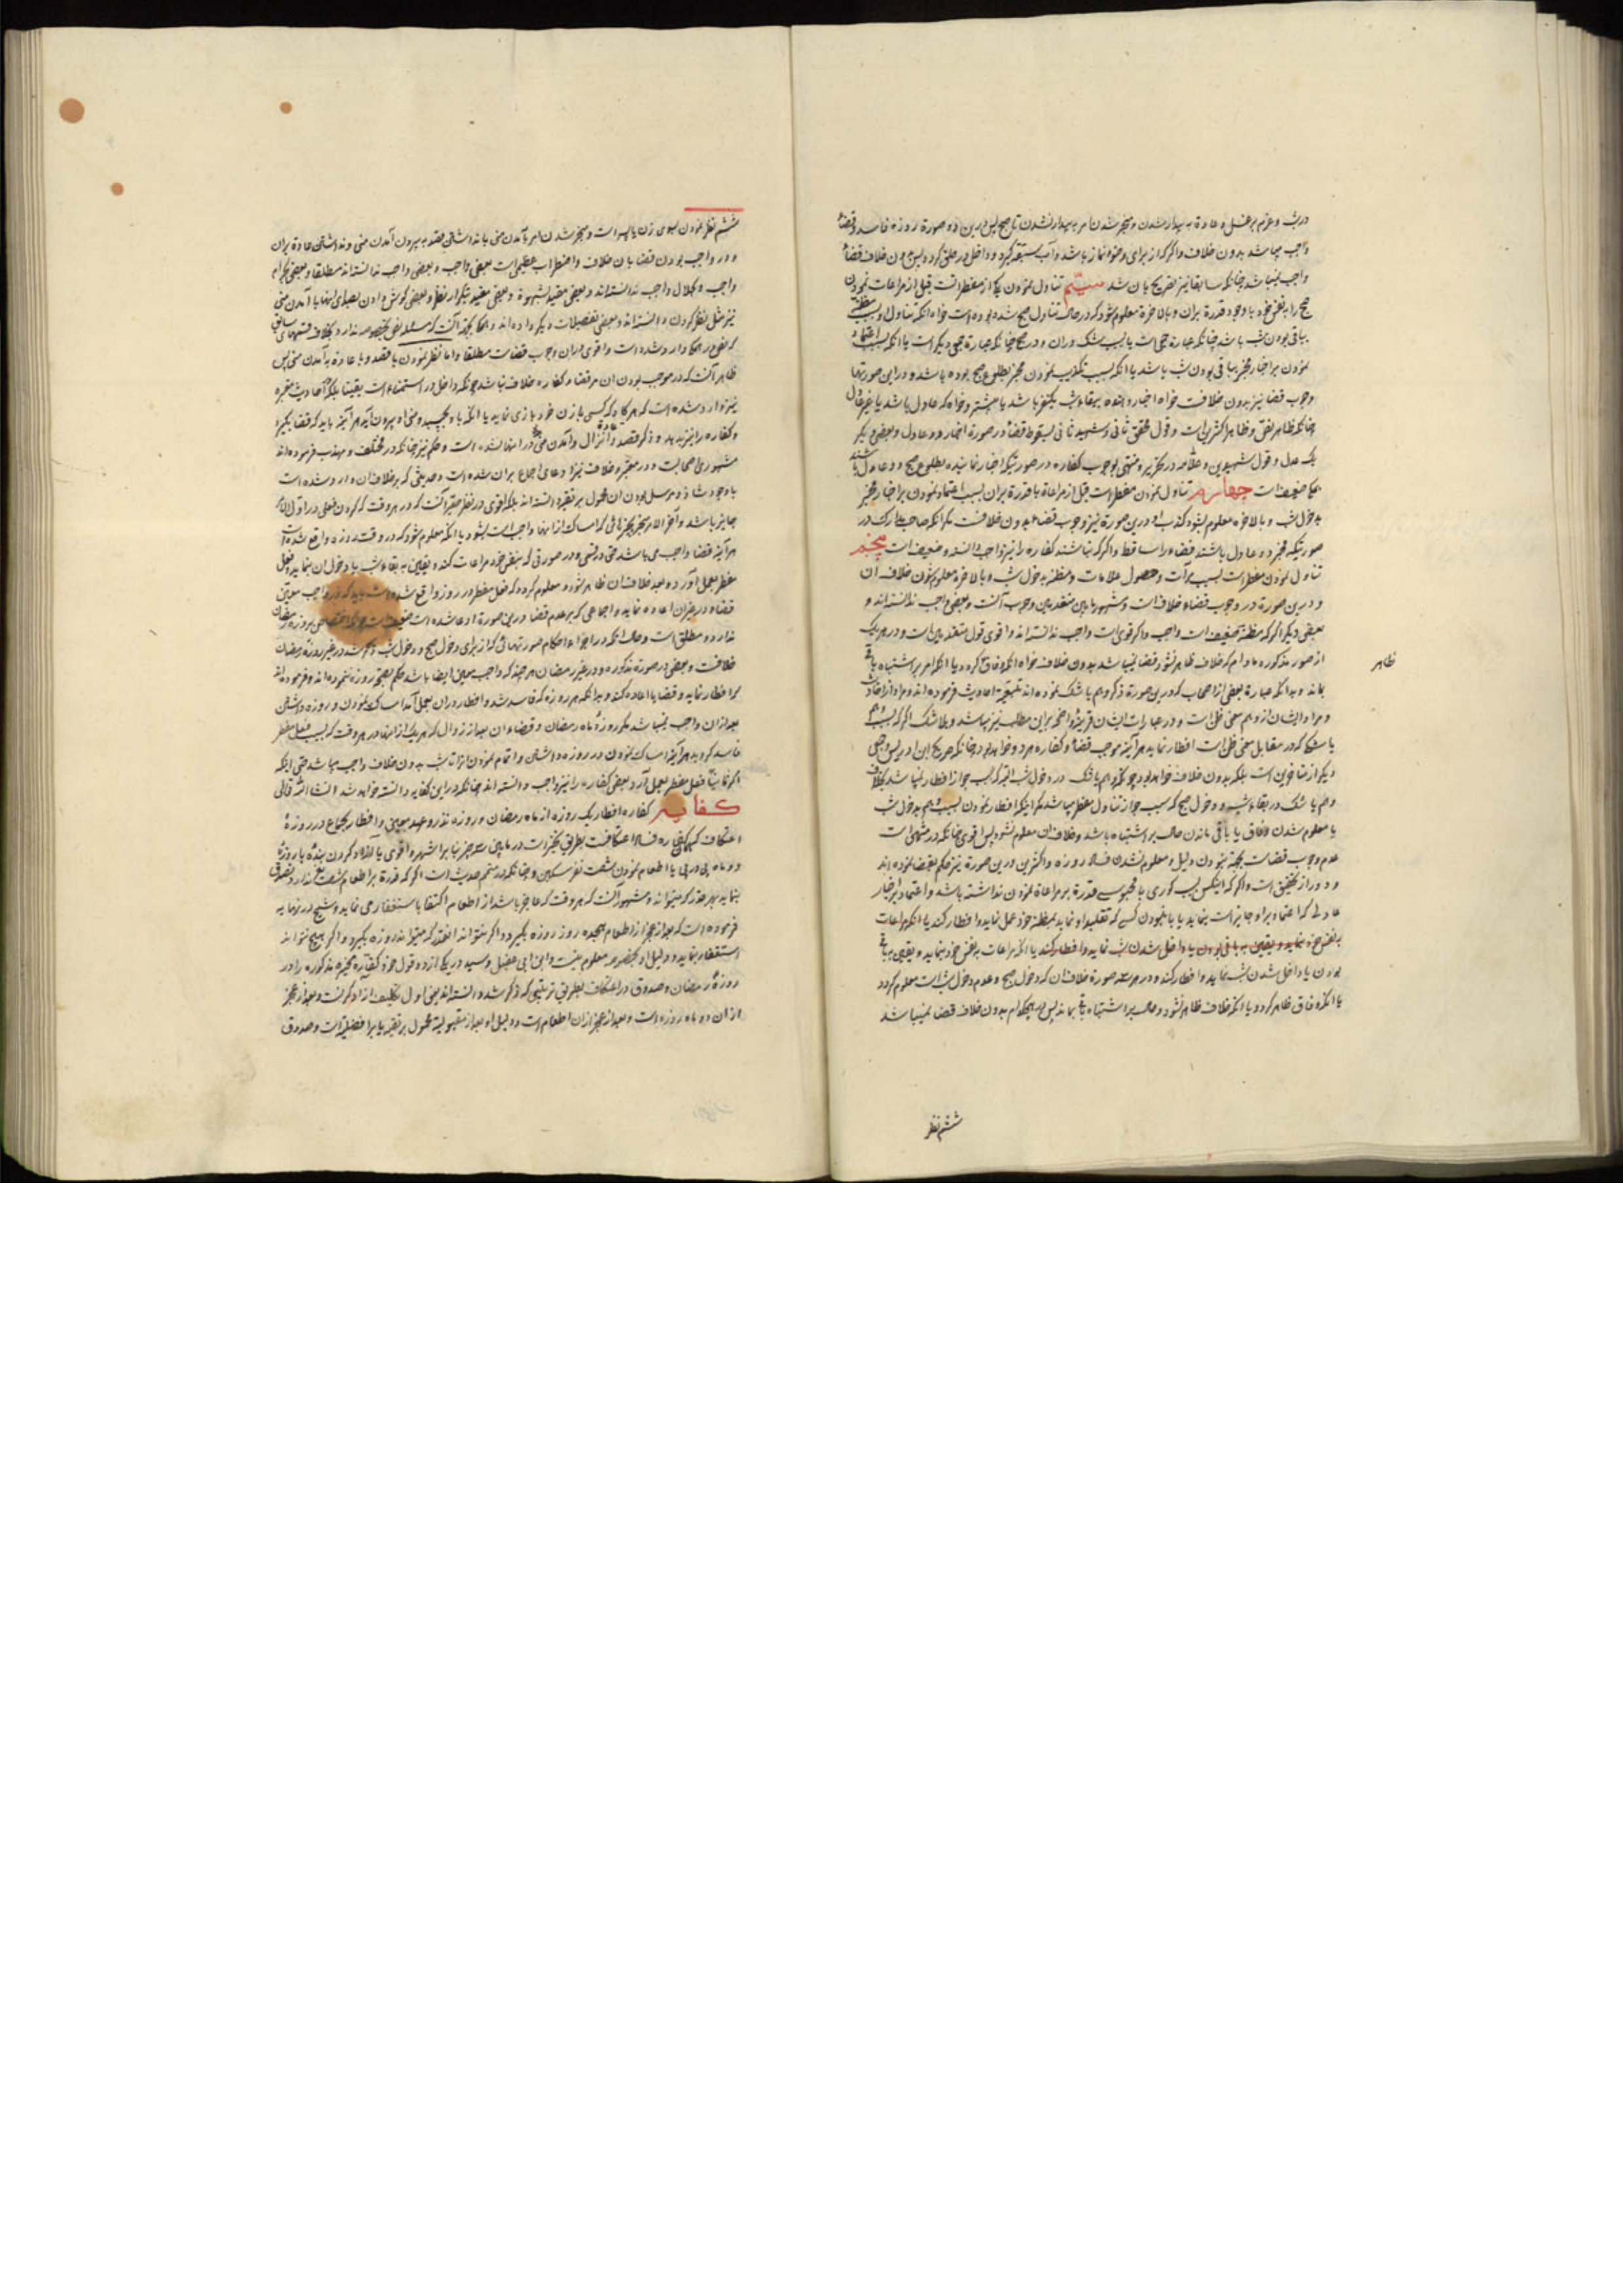 در شب و عزم بر غسل و عادة به بیدار شدن و منجر شدن امر به بیدار نشدن تا صبح پس درین دو صورة روزه فاسد و قضاء
واجب میباشد بدون خلاف و اگر که از برای وضوء نماز باشد و آب سبقة گیرد و داخل در حلق گردد پس بدون خلاف قضاء
واجب نمیباشد چنانکه سابقا نیز تصریح بان شد سیّم تناول نمودن یکی از مفطراتست قبل از مراعات نمودن
صبح را بنفس خود با وجود قدرة بران و بالاخرة معلوم شود که در حالت تناول صبح شده بوده است خواه آنکه تناول او بسبب مظنّه
بباقی بودن شب باشد چنانکه عبارة جمعی است یا بسبب شک دران و در صبح چنانکه عبارة جمعی دیگر است یا آنکه بسبب اعتماد
نمودن بر اخبار مخبر بباقی بودن شب باشد یا آنکه بسبب تکذیب نمودن مخبر بطلوع صبح بوده باشد و در این صورتها
وجوب قضا نیز بدون خلافست خواه اخبار دهنده ببقاء شب یکنفر باشد یا بیشتر و خواه که عادل باشد یا غیر عادل
چنانکه ظاهر نص و ظاهر اکثر یست و قول محقق ثانی و شهید ثانی بسقوط قضاء در صورة اخبار دو عادل و بعضی دیگر
یک عدل و قول شهیدین و علّامه در تحریر و منتهی بوجوب کفاره در صورتیکه اخبار نماینده بطلوع صبح دو عادل باشند
همگی ضعیفست چهارم تناول نمودن مفطر است قبل از مراعاة با قدرة بران بسبب اعتماد نمودن بر اخبار مخبر
بدخول شب و بالاخره معلوم شود کذب او و درین صورة نیز وجوب قضاء بدون خلافست مگر آنکه صاحب مدارک در
صورتیکه مخبر دو عادل باشند قضاء را ساقط و اگر که نباشند کفاره را نیز واجب دانسته و ضعیف است پنجم
تناول نمودن مفطر است بسبب برآت و حصول علامات و مظنه بدخول شب و بالاخره معلوم شدن خلاف ان
و درین صورة در وجوب قضاء خلافست و مشهور ما بین متقدمین وجوب آنست و بعضی واجب ندانسته اند و
بعضی دیگر اگر که مظنّه ضعیف است واجب و اگر قوی است واجب ندانسته اند و اقوی قول متقدمین است و در هر یک
از صور مذکوره مادام که خلاف ظاهر نشود قضا نمیباشد بدون خلاف خواه آنکه وفاق گردد یا آنکه امر بر اشتباه باقی
بماند و بدانکه عبارة بعضی از اصحاب که درین صورة ذکر وهم یا شک نموده اند
و مراد ایشان از وهم معنی ظن است و در عبارات ایشان قرینه واضحه بر این مطلب نیز میباشد و بلا شک اگر که بسبب وهم
یا شکی که در مقابل معنی ظن است افطار نماید هر آینه موجب قضاء و کفاره هر دو خواهد بود چنانکه صریح ابن ادریس و جمعی
دیگر از متاخرین است بلکه بدون خلاف خواهد بود چونکه وهم یا شک در دخول شب البته که سبب جواز افطار نمیباشد بخلاف
وهم یا شک در بقاء شب و دخول صبح که سبب جواز تناول مفطر میباشد مگر اینکه افطار نمودن بسبب وهم بدخول شب
یا معلوم شدن وفاق یا باقی ماندن حالت بر اشتباه باشد و خلاف ان معلوم نشود پس اقوی چنانکه در منتهی است
عدم وجوب قضاست بجهة نبودن دلیل و معلوم نشدن فساد روزه و اکثرین درین صورة نیز حکم بقضا نموده اند
و دور از تحقیق است و اگر که اینکس بسبب کوری یا محبوسی قدرة بر مراعاة نمودن نداشته باشد و اعتماد بر اخبار
عادلی که اعتماد بر او جایز است بنماید یا با نبودن کسی که تقلید او نماید بمظنه خود عمل نماید و افطار کند یا آنکه مراعات
بنفس خود بنماید و یقین به باقی بودن یا داخل شدن شب نماید و افطار کند یا آنکه مراعات بنفس خود بنماید و یقین به باقی
بودن یا داخل شدن شب نماید و افطار کند و در هر سه صورة خلاف ان که دخول صبح و عدم دخول شب است معلوم گردد
یا آنکه وفاق ظاهر گردد یا آنکه خلاف ظاهر نشود و حالت بر اشتباه باقی بماند پس در هیچکدام بدون خلاف قضا نمیباشد
ظاهر
ششم نظر
ششم نظر نمودن بسوی زن یا پسر است و منجر شدن امر بآمدن منی با نداشتن قصد به بیرون آمدن منی و نداشتن عادة بران
و در واجب بودن قضا بان خلاف و اضطراب عظیمی است بعضی واجب و بعضی واجب ندانسته اند مطلقا و بعضی بحرام
واجب و بحلال واجب ندانسته اند و بعضی مقید بشهوة و بعضی مقید بتکرار نظر و بعضی گوش دادن بصدای اینها با آمدن منی
نیز مثل نظر کردن دانسته اند و بعضی تفصیلات دیگر داده اند و همگی بجهة آنست که مسئله نص بخصوصه ندارد بخلاف قسمهای سابق
که نص در همگی وارد شده است و اقوی دران وجوب قضاست مطلقا و اما نظر نمودن با قصد و یا عادة به آمدن منی پس
ظاهر آنست که در موجب بودن ان مر قضاء و کفاره خلاف نباشد چونکه داخل در استمناء است یقینا بلکه احادیث معتبره
نیز وارد شده است که هر گاه که کسی با زن خود بازی نماید یا آنکه باو بچسبد و منی او بیرون آید هر آینه باید که قضا بگیرد
و کفاره را نیز بدهد و ذکر قصد و انزال و آمدن منی در اینها نشده است و حکم نیز چنانکه در مختلف و مهذب فرموده اند
مشهور میان اصحابست و در معتبر و خلاف نیز ادعای اجماع بران شده است و حدیثی که بر خلاف ان وارد شده است
با وجود شاذ و مرسل بودن ان محمول بر تقیه دانسته اند بلکه اقوی در نظر حقیر آنست که در هر وقت که کردن فعلی در اول امر
جایز باشد و آخر الامر منجر بچیزهائی که امساک از اینها واجب است بشود یا آنکه معلوم شود که در وقت روزه واقع شده است
هر آینه قضا واجب می باشد حتی در نسی و در صورتی که بنفس خود مراعات کند و یقین به بقاء شب یا دخول ان نماید و فعل
مفطر بعمل آورد و بعد خلاف ان ظاهر شود و معلوم گردد که فعل مفطر در روز واقع شده است باید که در واجب معیّن
قضاء و در غیر ان اعاده نماید و اجماعی که بر عدم قضا در این صورة ادعا شده است ضعیف است چونکه اختصاصی بروزه رمضان
ندارد و مطلق است و حال آنکه در اجراء احکام صورتهائی که از برای دخول صبح و دخول شب ذکر شد در غیر روزه رمضان
خلافست و بعضی در صورة مذکوره و در غیر رمضان هر چند که واجب معیّن ایضا باشد حکم بصحّة روزه ننموده اند و فرموده اند
که افطار نماید و قضا یا اعاده کند و بدانکه هر روزه که فاسد شد و افطار دران بعمل آمد امساک نمودن و روزه داشتن
بعد از ان واجب نمیباشد مگر روزهٔ ماه رمضان و قضاء ان بعد از زوال که هر یک از اینها در هر وقت که بسبب فعل مفطر
فاسد گردد هر آینه امساک نمودن در روزه داشتن و اتمام نمودن انرا تا شب بدون خلاف واجب میباشد حتی اینکه
اگر ثانیا فعل مفطر بعمل آرد بعضی کفاره را نیز واجب دانسته اند چنانکه در این کفایه دانسته خواهد شد انشا الله تعالی
کفایه کفاره افطار یک روزه از ماه رمضان و روزه نذر و عهد معینی و افطار بجماع در روزهٔ
اعتکاف که کفاره فساد اعتکافست بطریق تخییر است در ما بین سه چیز بنا بر اشهر و اقوی یا آزاد کردن بنده یا روزهٔ
دو ماه پی در پی یا اطعام نمودن شصت نفر مسکین و چنانکه در متمم حدیث است اگر که قدرة بر اطعام شصت نفر ندارد تصدق
بنماید بهر قدر که میتواند و مشهور آنست که هر وقت که عاجز باشد از اطعام اکتفا باستغفار می نماید و شیخ در نهایه
فرموده است که بعد از عجز از اطعام هیجده روز روزه بگیرد و اگر نتواند آنقدر که میتواند روزه بگیرد و اگر هیچ نتواند
استغفار بنماید و دلیل او بخصوصه معلوم نیست و ابن ابی عقیل و سید در یکی از دو قول خود کفاره مخیره مذکوره را در
روزهٔ رمضان و صدوق در اعتکاف بطریق ترتیبی که ذکر شد دانسته اند یعنی اول تکلیف آزاد کردنست و بعد از عجز
از ان دو ماه روزه است و بعد از عجز از ان اطعام است و دلیل او بعد از مقبولیّة محمول بر تقیه یا بر افضلیّة است و صدوق